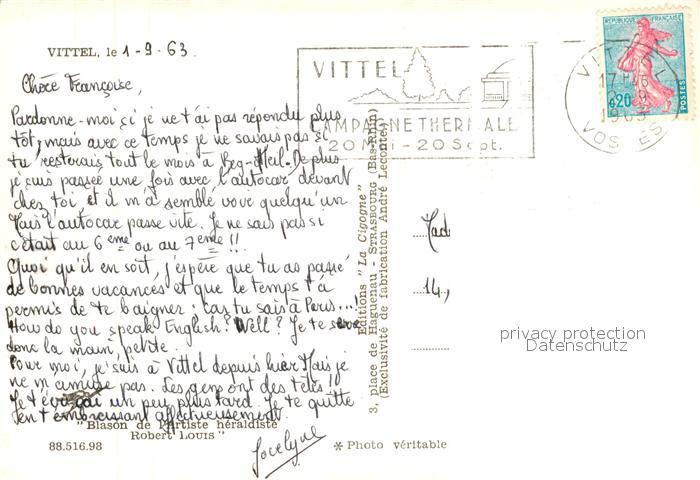 VITTEL, le 1-9-63.
Chère Françoise,
Pardonne-moi si je ne t'ai pas répondu plus
tôt, mais avec ce temps je ne savais pas si
tu resterais tout le mois à Beg-Meil. De plus
je suis passée une fois avec l'autocar devant
chez toi, et il m'a semblé voir quelqu'un
Mais l'autocar passe vite. Je ne sais pas si
c'était au 6ème ou au 7ème!!
Quoi qu'il en soit, j'espère que tu as passé
de bonnes vacances et que le temps t'a
permis de te baigner; car tu sais à Paris...
How do you speak English? Well? Je te serre
donc la main, petite.
Pour moi, je suis à Vittel depuis hier. Mais je
ne m'amuse pas. Les gens ont des têtes!!
Je t'écrirai un peu plus tard. Je te quitte
en t'embrassant affectueusement.
Jocelyne
"Blason de l'Artiste héraldiste
Robert LOUIS"
88.516.98
* Photo véritable
Editions "La Cigogne"
3, place de Haguenau - STRASBOURG (Bas-Rhin)
(Exclusivité de fabrication André Leconte)
VITTEL
CAMPAGNE THERMALE
20 Mai - 20 Sept.
VITTEL
17H
1963
VOSGES
REPUBLIQUE FRANÇAISE
0,20
POSTES
Mad
14,
privacy protection
Datenschutz